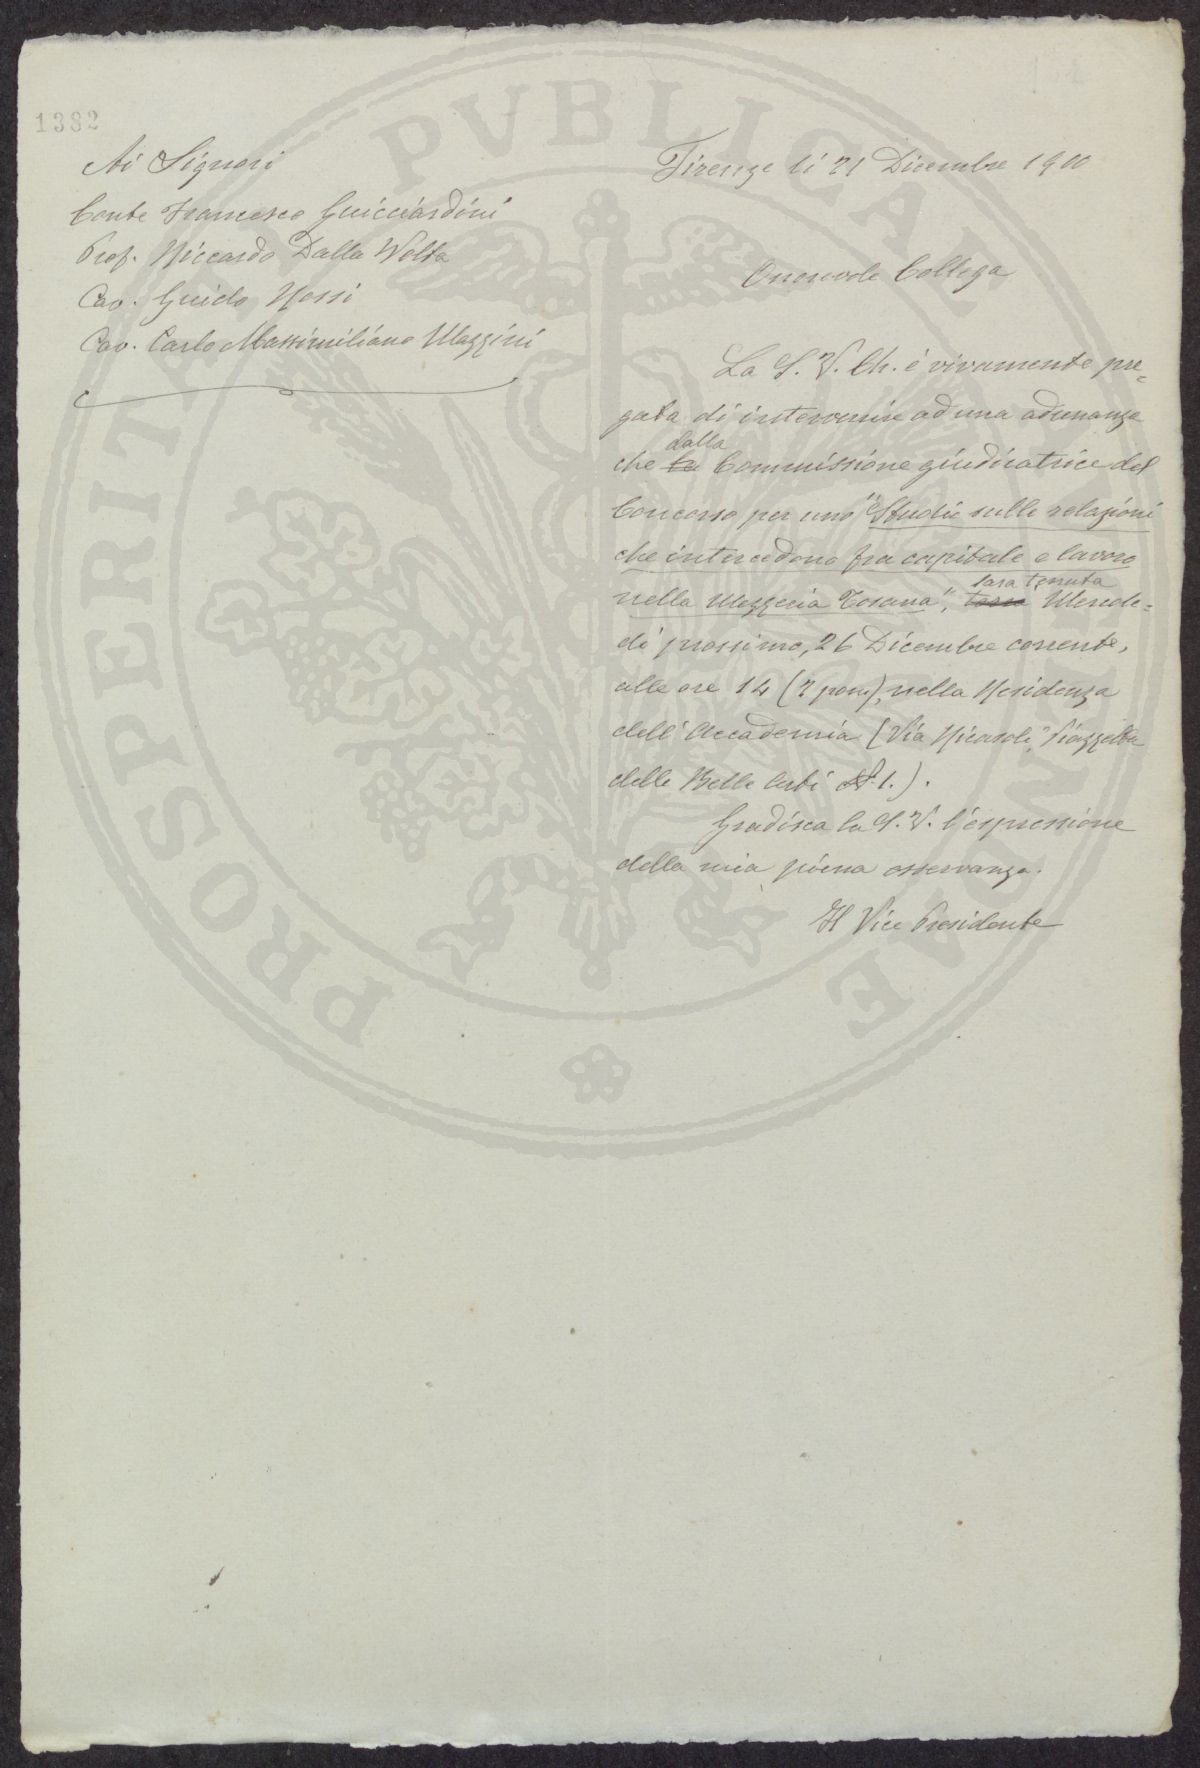 1382
Ai Signori
Conte Francesco Guicciardini
Prof. Riccardo Dalla Volta
Cav. Guido Rossi
Cav. Carlo Massimiliano Mazzini
Firenze li 21 Dicembre 1900
Onorevole Collega
La S. V. Ch. è vivamente pre=
gata di intervenire ad una adunanza
dalla
che la Commissione giudicatrice del
Concorso per uno "Studio sulle relazioni
che intercedono fra capitale e lavoro
sara tenuta
nella Mezzeria Toscana", Mercole=
dì prossimo, 26 Dicembre corrente,
alle ore 14 (2 pom.), nella Residenza
dell'Accademia (Via Ricasoli, Piazzetta
delle Belle Arti N. 1.).
Gradisca la S. V. l'espressione
della mia piena osservanza.
Il Vice Presidente
PROSPERITATI PVBLICAE AVGENDAE